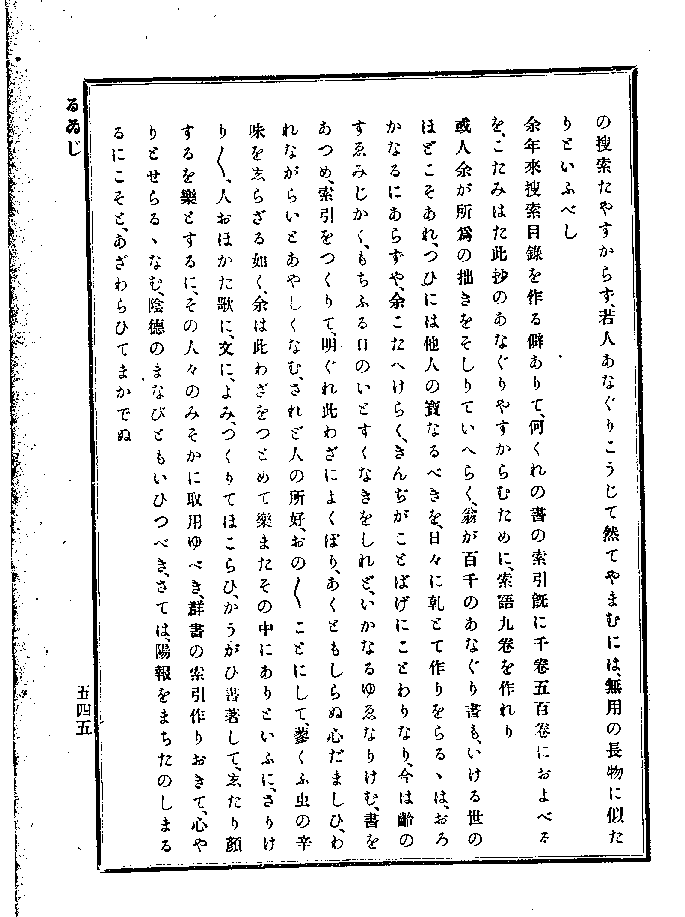 の搜索たやすからず、若人あなぐりこうじて然てやまむには、無用の長物に似た
りといふべし
余年來搜索目錄を作る僻ありて、何くれの書の索引旣に千卷五百卷におよべる
を、こたみはた此抄のあなぐりやすからむために、索語九卷を作れり
或人余が所爲の拙きをそしりていへらく、翁が百千のあなぐり書も、いける世の
ほどこそあれ、つひには他人の寶なるべきを、日々に乹とて作りをらるヽは、おろ
かなるにあらずや、余こたへけらく、きんぢがことばげにことわりなり、今は齡の
すゑみじかく、もちふる日のいとすくなきをしれど、いかなるゆゑなりけむ、書を
あつめ、索引をつくりて、明ぐれ此わざによくぼり、あくともしらぬ心だましひ、わ
れながらいとあやしくなむ、されど人の所好、おの〳〵ことにして、蓼くふ虫の辛
味を𛀁らざる如く、余は此わざをつとめて樂またその中にありといふに、さりけ
り〳〵、人おほかた歌に、文に、よみ、つくりてほこらひ、かうがひ書著して、𛀁たり顏
するを樂とするに、その人々のみそかに取用ゆべき、群書の索引作りおきて、心や
りとせらるヽなむ、陰德のまなびともいひつべき、さては、陽報をまちたのしまる
るにこそと、あざわらひてまかでぬ
るゐじ
五四五